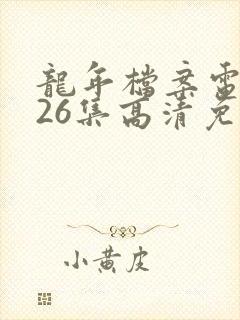 龍年檔案電
26集高清免
小黃皮